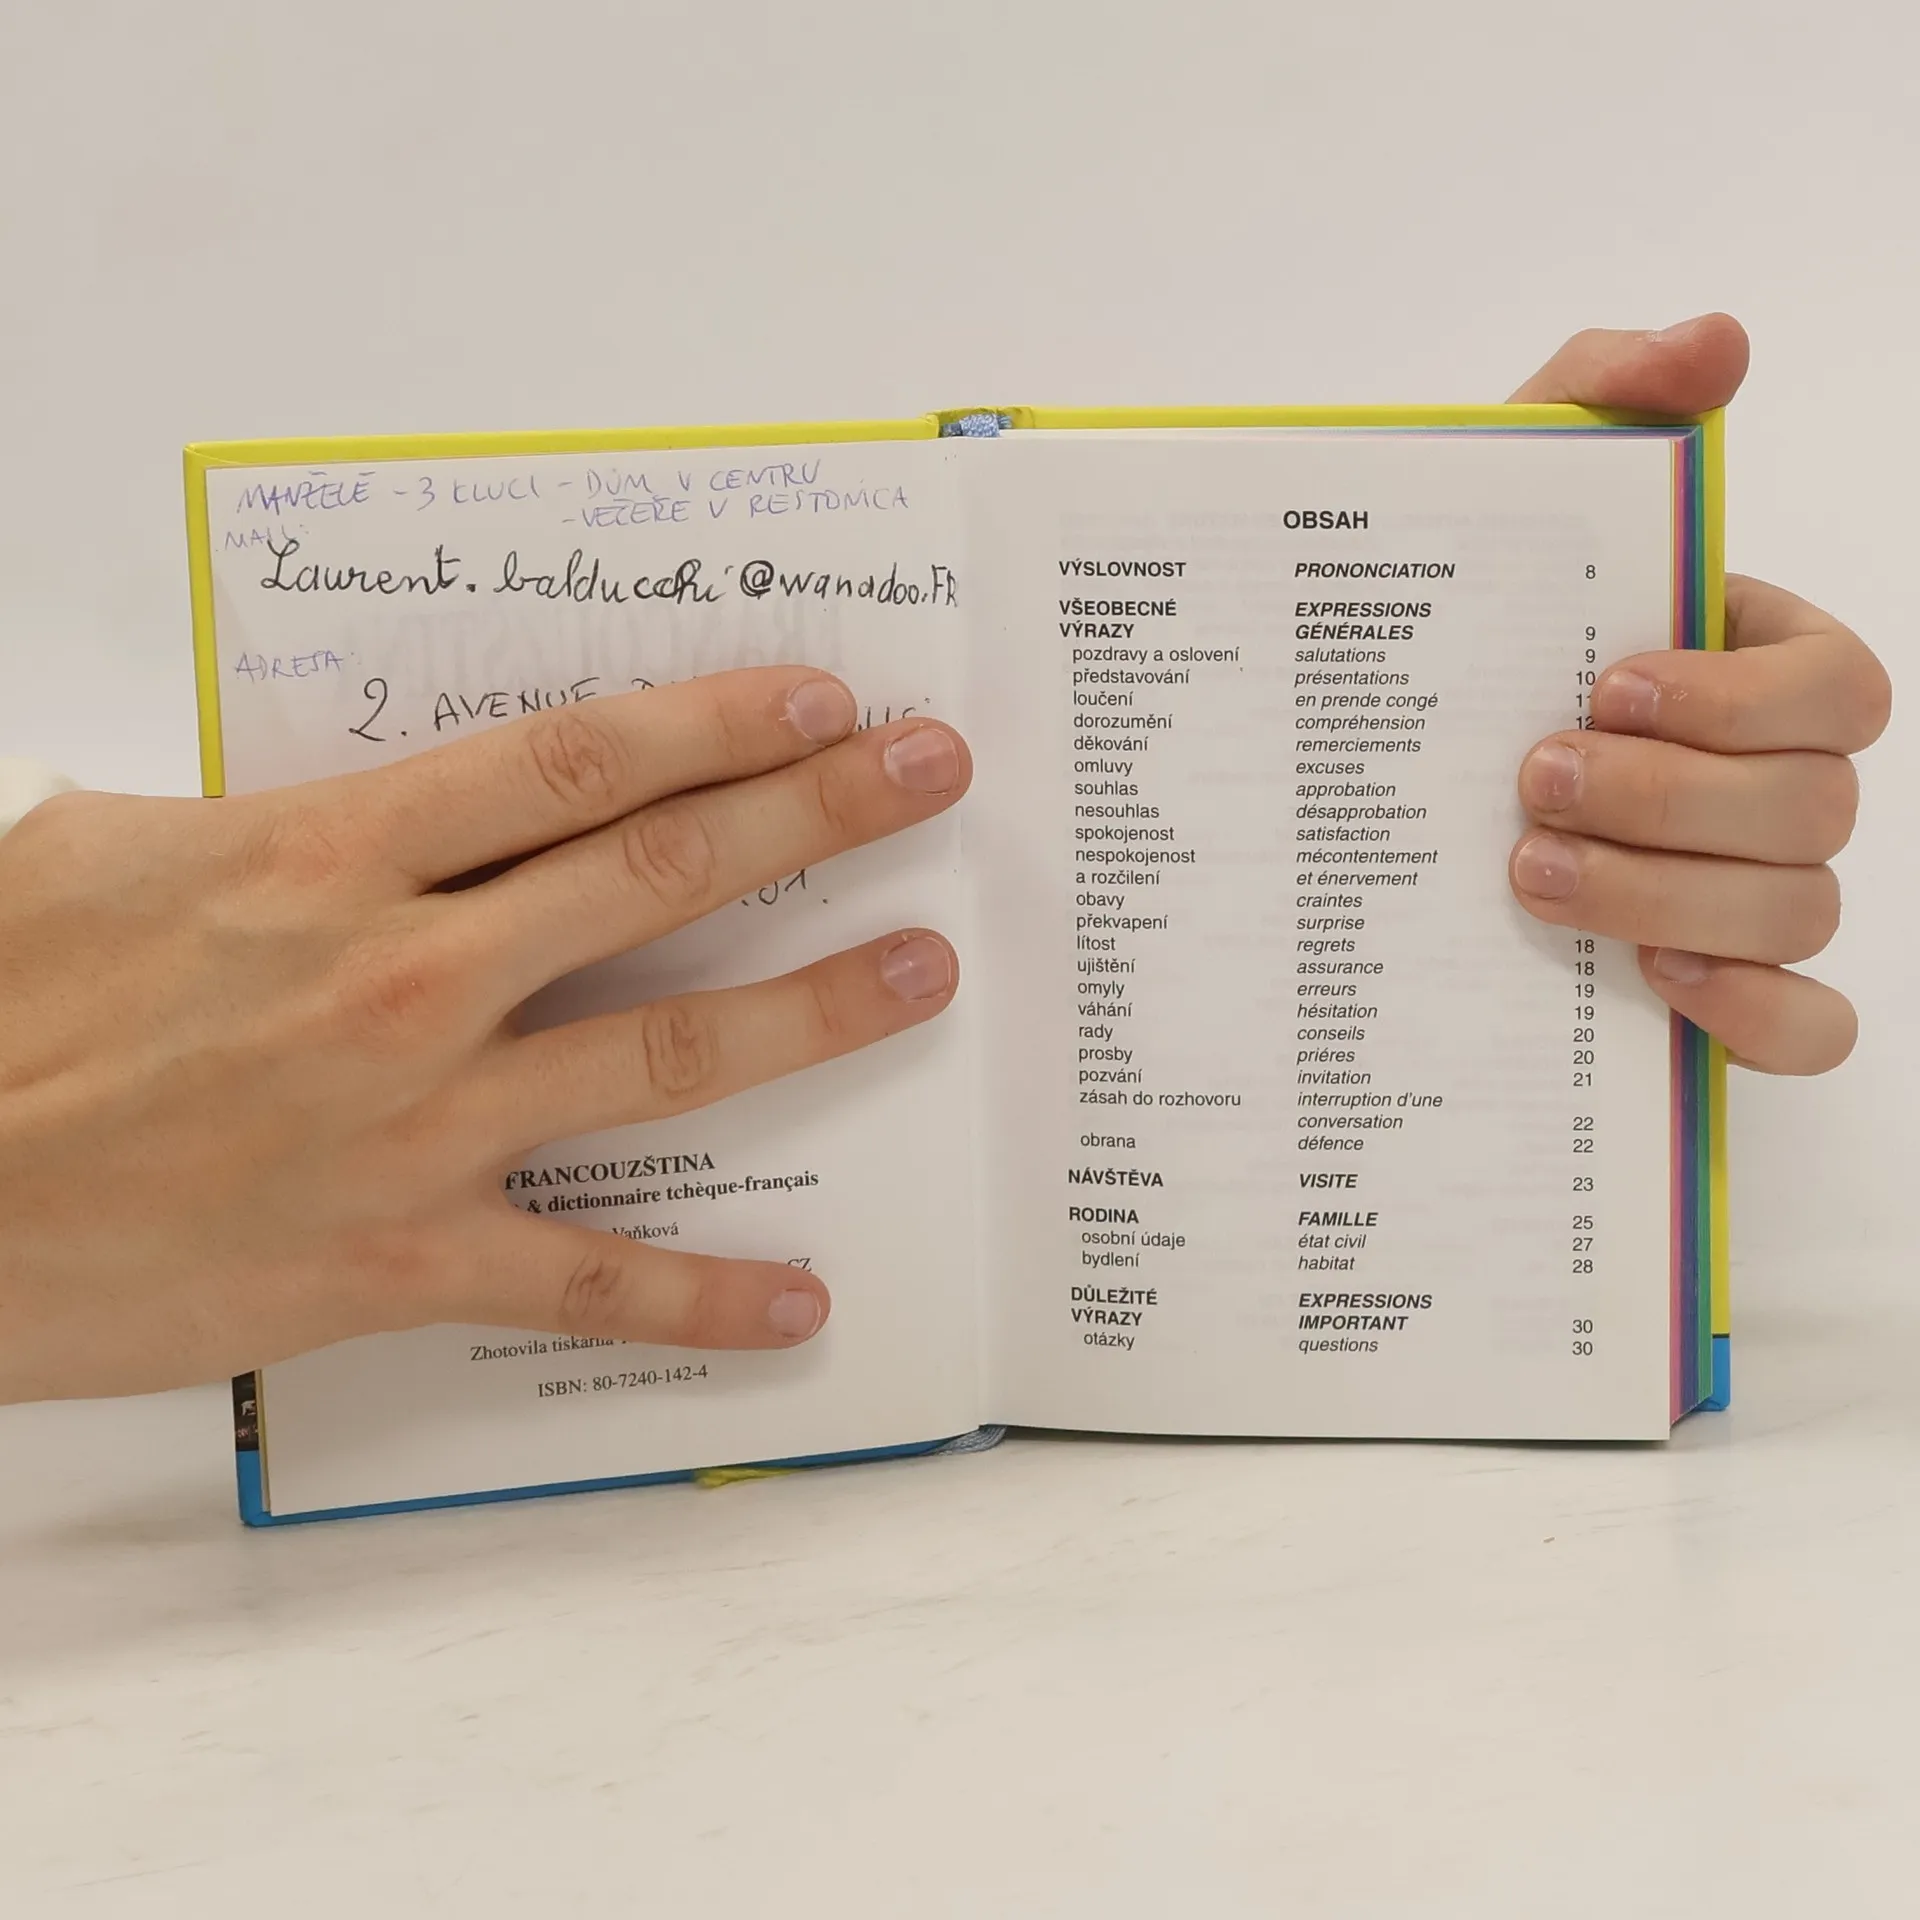 MANŽELÉ - 3 KLUCI - DŮM V CENTRU
- VEČEŘE V RESTONICA
MAIL:
Laurent.balducchi@wanadoo.FR
ADRESA:
2. AVENUE
.01.
FRANCOUZŠTINA
& dictionnaire tchèque-français
Vaňková
CZ
Zhotovila tiskárna
ISBN: 80-7240-142-4
OBSAH
VÝSLOVNOST PRONONCIATION 8
VŠEOBECNÉ EXPRESSIONS
VÝRAZY GÉNÉRALES 9
pozdravy a oslovení salutations 9
představování présentations 10
loučení en prende congé 11
dorozumění compréhension 12
děkování remerciements
omluvy excuses
souhlas approbation
nesouhlas désapprobation
spokojenost satisfaction
nespokojenost mécontentement
a rozčilení et énervement
obavy craintes
překvapení surprise
lítost regrets 18
ujištění assurance 18
omyly erreurs 19
váhání hésitation 19
rady conseils 20
prosby priéres 20
pozvání invitation 21
zásah do rozhovoru interruption d'une
conversation 22
obrana défence 22
NÁVŠTĚVA VISITE 23
RODINA FAMILLE 25
osobní údaje état civil 27
bydlení habitat 28
DŮLEŽITÉ EXPRESSIONS
VÝRAZY IMPORTANT 30
otázky questions 30